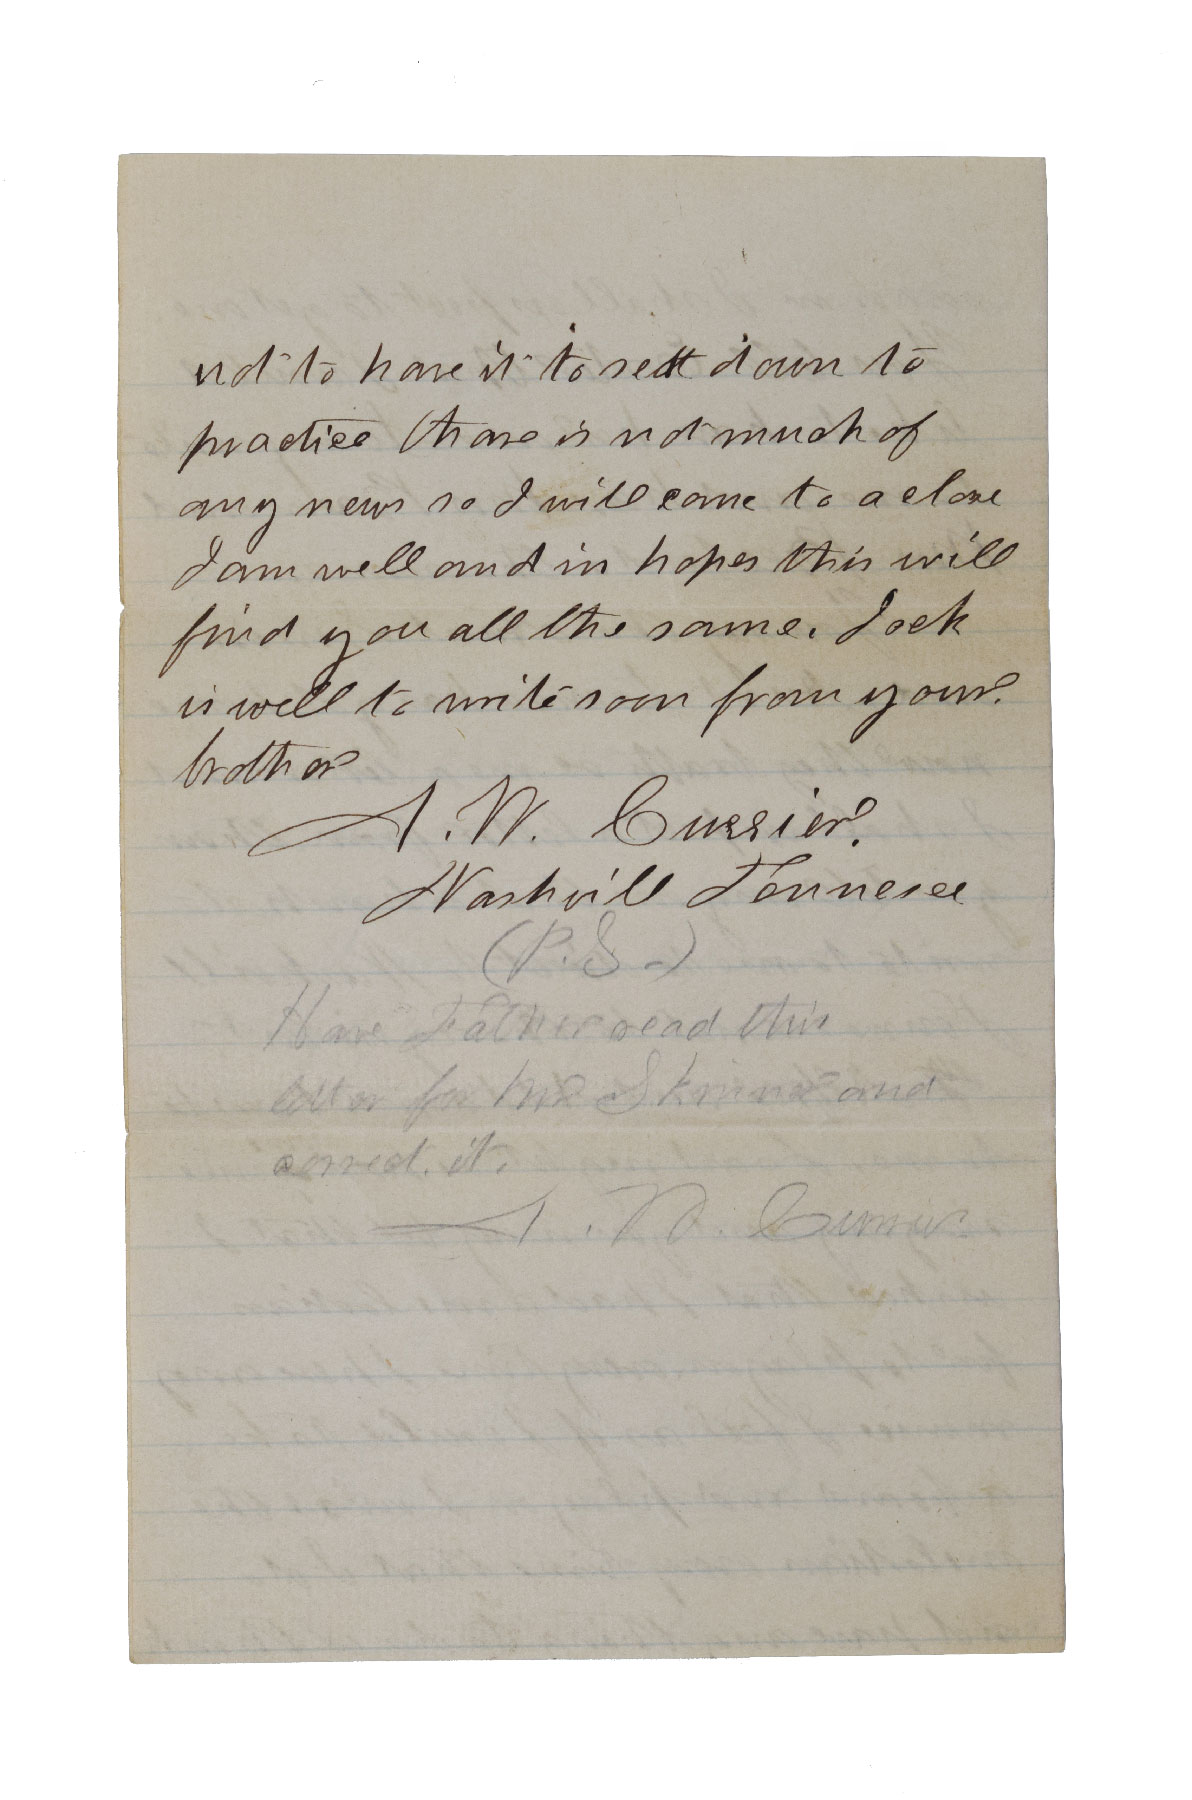 not to have it to sett down to
practice thare is not much of
any news so I will come to a close
I am well and in hopes this will
find you all the same. Jack
is well to write soon from your
brother
A. W. Currier.
Nashvill Tennesee
(P.S.)
Have Father read this
letter for Mr Skinner and
correct it.
A. W. Currier